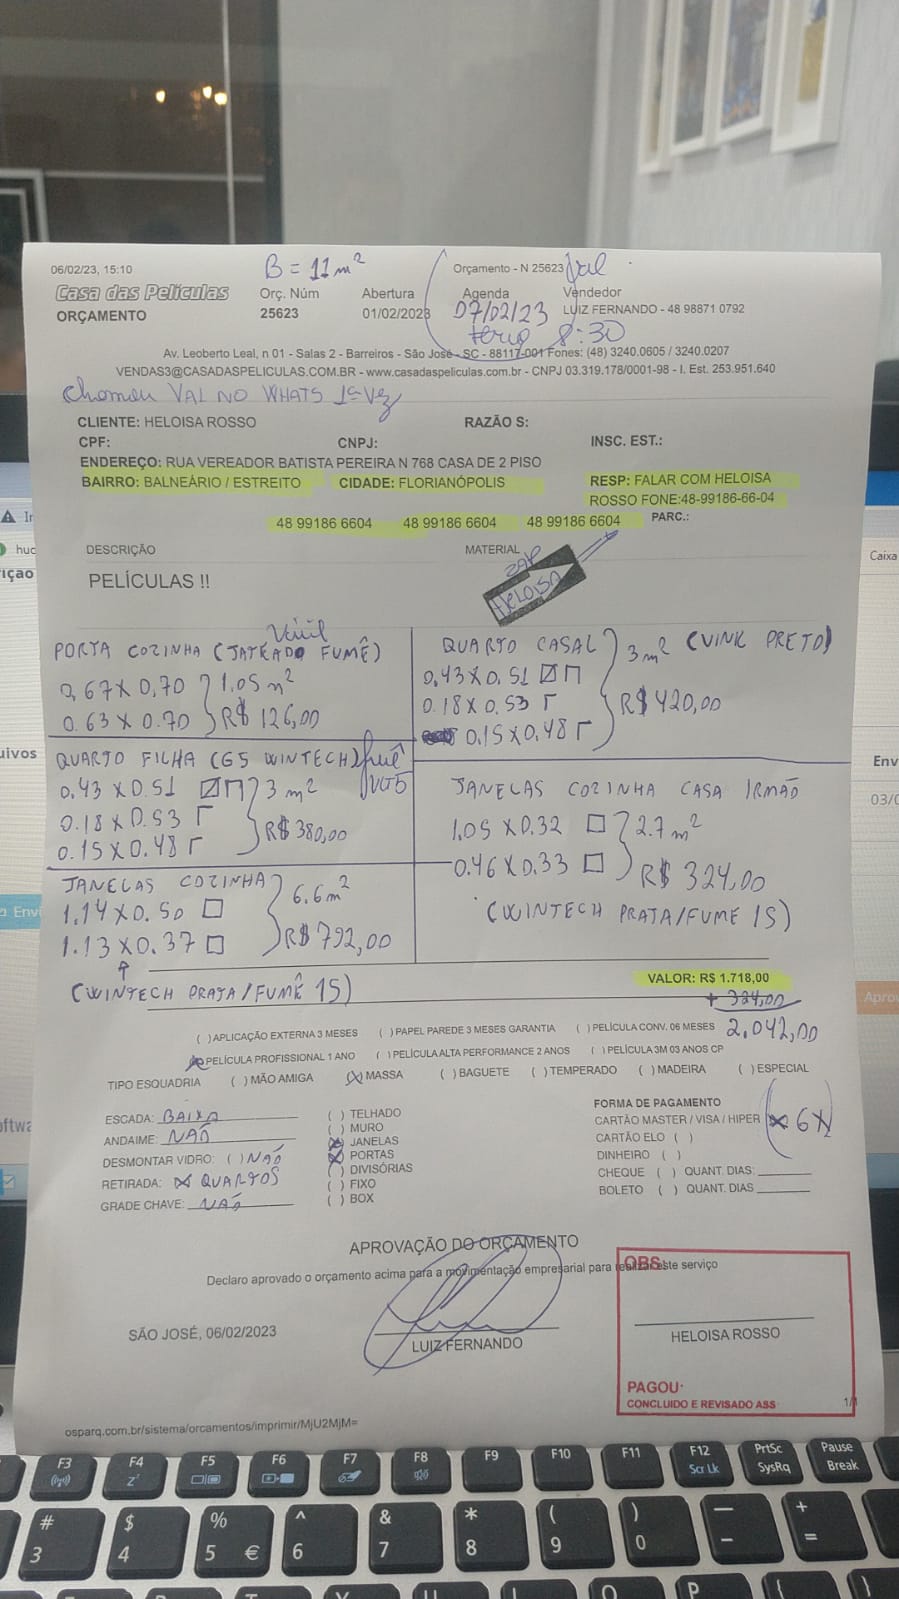 06/02/23, 15:10
B = 11 m²
Orçamento - N 25623
Val
Casa das Películas
Orç. Núm
Abertura
Agenda
Vendedor
ORÇAMENTO
25623
01/02/2023
07/02/23
LUIZ FERNANDO - 48 98871 0792
terça 8:30
Av. Leoberto Leal, n 01 - Salas 2 - Barreiros - São José - SC - 88117-001 Fones: (48) 3240.0605 / 3240.0207
VENDAS3@CASADASPELICULAS.COM.BR - www.casadaspeliculas.com.br - CNPJ 03.319.178/0001-98 - I. Est. 253.951.640
Chamou VAL NO WHATS 1ª Vez
CLIENTE: HELOISA ROSSO
RAZÃO S:
CPF:
CNPJ:
INSC. EST.:
ENDEREÇO: RUA VEREADOR BATISTA PEREIRA N 768 CASA DE 2 PISO
BAIRRO: BALNEÁRIO / ESTREITO
CIDADE: FLORIANÓPOLIS
RESP: FALAR COM HELOISA
ROSSO FONE:48-99186-66-04
48 99186 6604
48 99186 6604
48 99186 6604
PARC.:
DESCRIÇÃO
MATERIAL
ZAP
HELOISA
PELÍCULAS !!
Vinil
PORTA COZINHA (JATEADO FUMÊ)
0,67 X 0,70
1.05 m²
0.63 X 0.70
R$ 126,00
QUARTO CASAL
3 m² (VINK PRETO)
0,43 X 0.51
0.18 X 0.53
R$ 420,00
0.15 X 0,48
QUARTO FILHA (G5 WINTECH)
0.43 X 0.51
3 m²
0.18 X 0.53
R$ 380,00
0.15 X 0.48
JANELAS COZINHA CASA IRMÃO
1.05 X 0.32
2.7 m²
0.46 X 0.33
R$ 324,00
(WINTECH PRATA/FUMÊ 15)
JANELAS COZINHA
6.6 m²
1.14 X 0.50
1.13 X 0.37
R$ 792,00
(WINTECH PRATA/FUMÊ 15)
VALOR: R$ 1.718,00
+ 324,00
2.042,00
( )APLICAÇÃO EXTERNA 3 MESES ( )PAPEL PAREDE 3 MESES GARANTIA ( )PELÍCULA CONV. 06 MESES
(X)PELÍCULA PROFISSIONAL 1 ANO ( )PELÍCULA ALTA PERFORMANCE 2 ANOS ( )PELÍCULA 3M 03 ANOS CP
TIPO ESQUADRIA ( )MÃO AMIGA (X)MASSA ( )BAGUETE ( )TEMPERADO ( )MADEIRA ( )ESPECIAL
ESCADA: BAIXA
ANDAIME: NÃO
DESMONTAR VIDRO: ( )NÃO
RETIRADA: X QUARTOS
GRADE CHAVE: NÃO
( ) TELHADO
( ) MURO
(X) JANELAS
(X) PORTAS
( ) DIVISÓRIAS
( ) FIXO
( ) BOX
FORMA DE PAGAMENTO
CARTÃO MASTER / VISA / HIPER (X 6X)
CARTÃO ELO ( )
DINHEIRO ( )
CHEQUE ( ) QUANT. DIAS:
BOLETO ( ) QUANT. DIAS
APROVAÇÃO DO ORÇAMENTO
Declaro aprovado o orçamento acima para a movimentação empresarial para realizar este serviço
OBS:
SÃO JOSÉ, 06/02/2023
LUIZ FERNANDO
HELOISA ROSSO
PAGOU:
CONCLUIDO E REVISADO ASS
1/1
osparq.com.br/sistema/orcamentos/imprimir/MjU2MjM=
F3 F4 F5 F6 F7 F8 F9 F10 F11 F12 PrtSc Pause
Scr Lk SysRq Break
# $ % ^ & * ( ) — +
3 4 5 € 6 7 8 9 0 - =